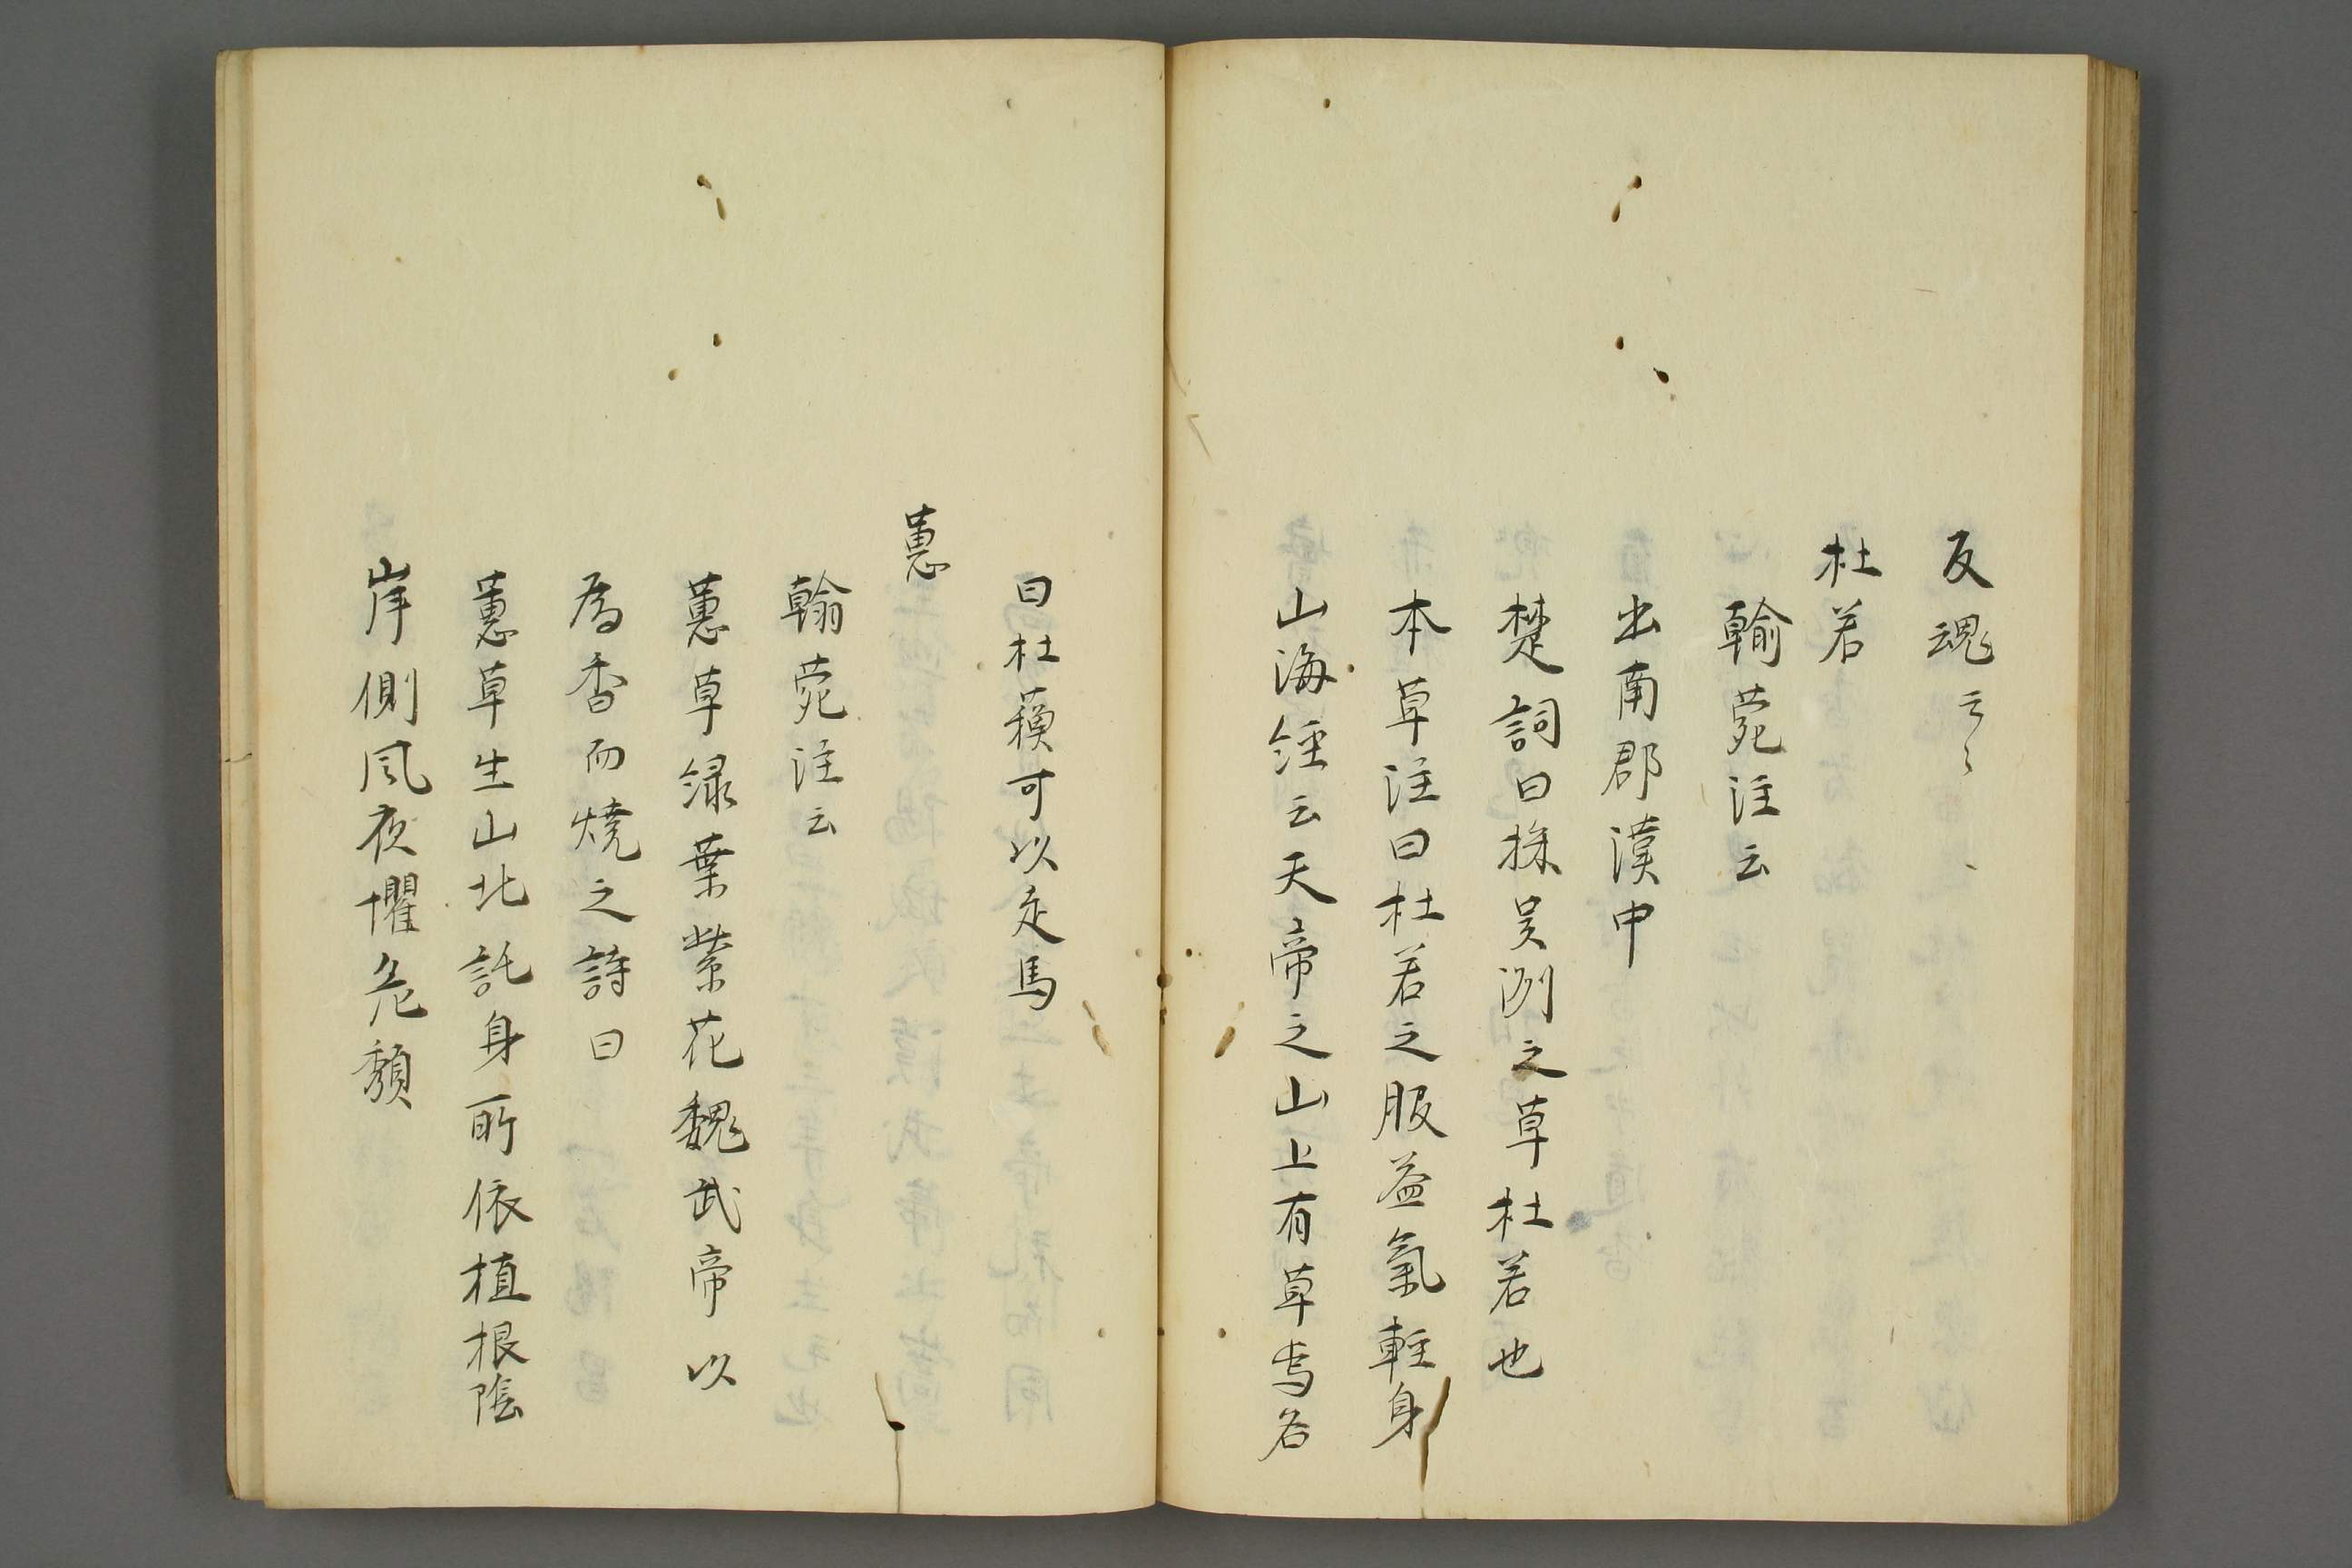 反魂云〻
杜若
翰菀注云
出南郡漢中
楚詞曰採芳洲之草杜若也
本草注曰杜若之服益氣軽身
山海経云天帝之山上有草焉名
曰杜蘅可以走馬
蕙
翰菀注云
蕙草緑葉紫花魏武帝以
為香而焼之詩曰
蕙草生山北託身所依植根陰
岸側風夜懼危頽